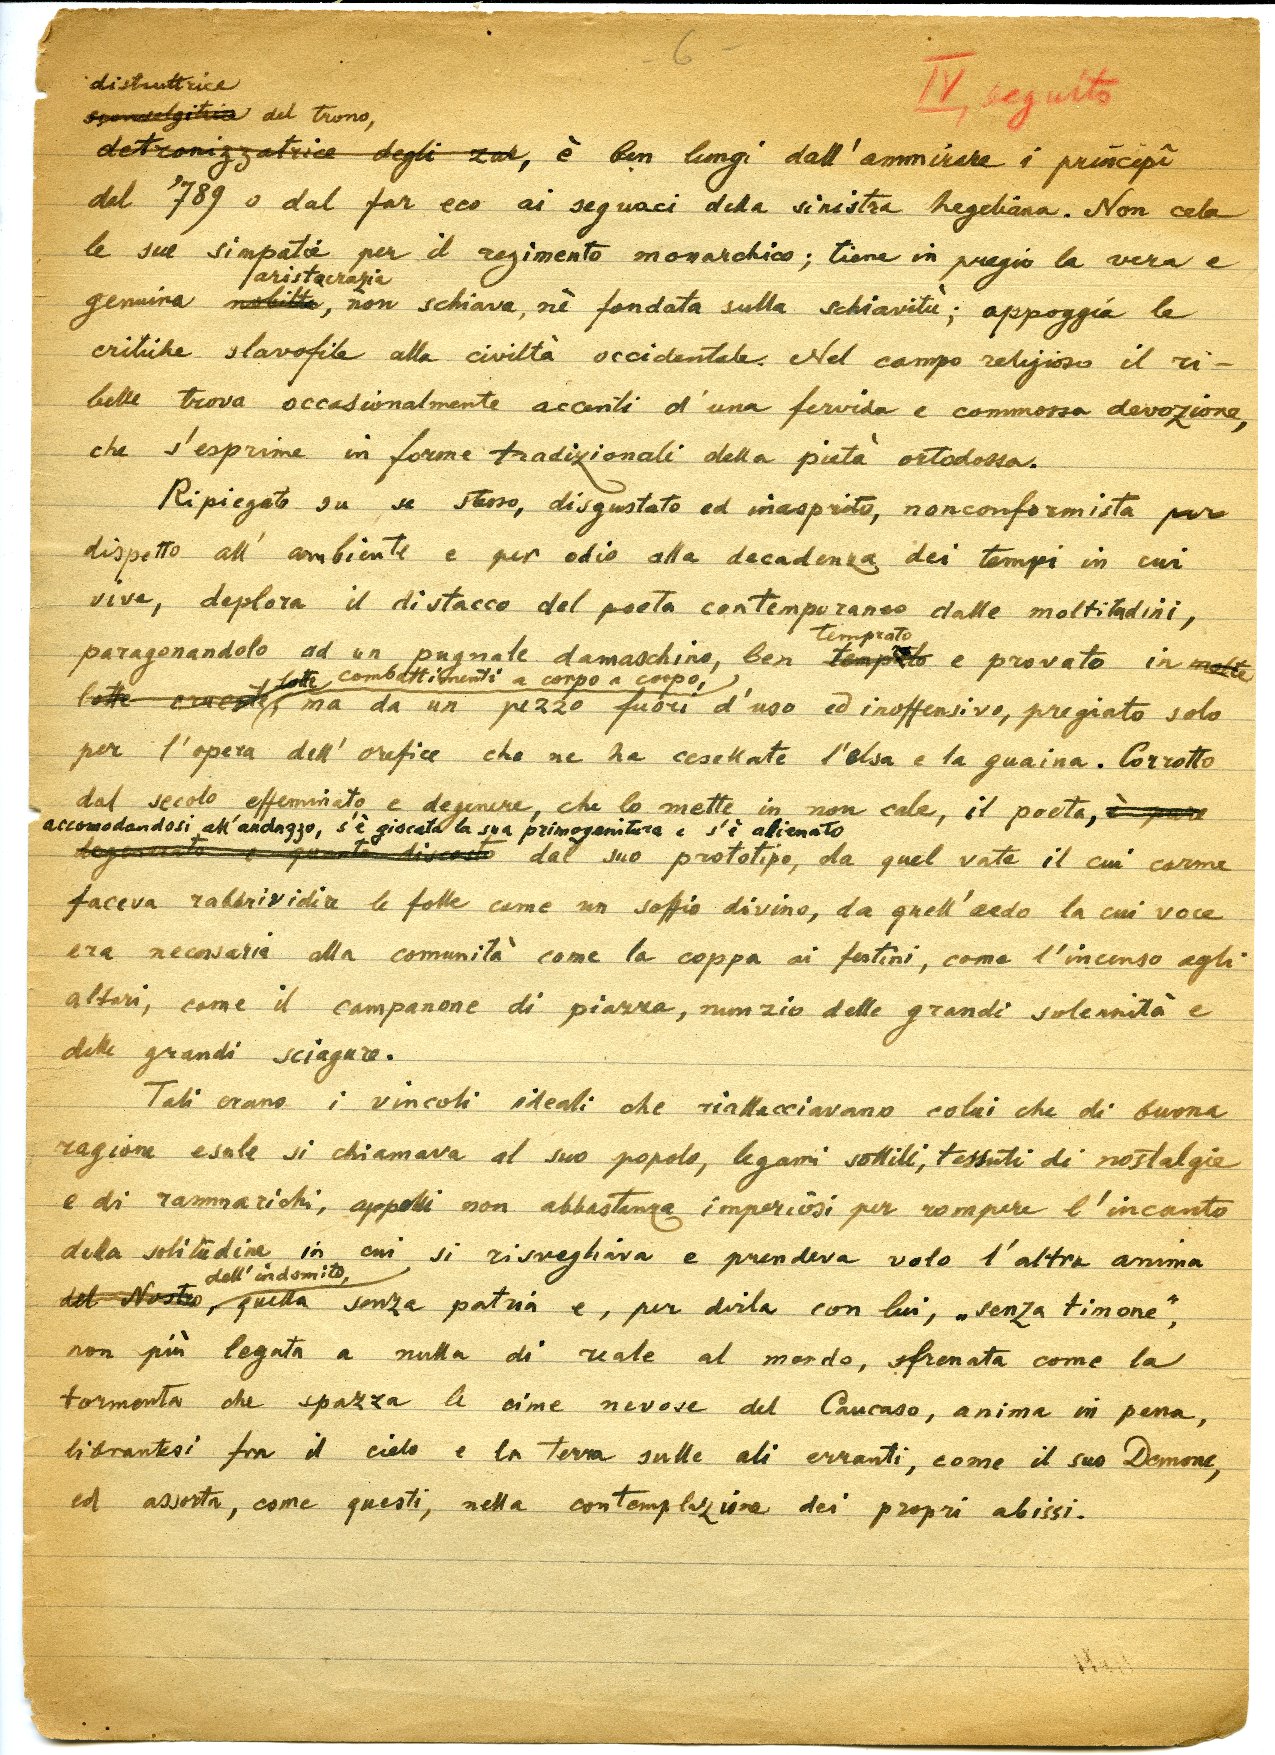 - 6 -
IV, seguito
distruttrice
del trono,
detronizzatrice degli zar, è ben lungi dall'ammirare i principî
del '789 o dal far eco ai seguaci della sinistra hegeliana. Non cela
le sue simpatie per il regimento monarchico; tiene in pregio la vera e
aristocrazia
genuina nobiltà, non schiava, nè fondata sulla schiavitù; appoggia le
critiche slavofile alla civiltà occidentale. Nel campo religioso il ri-
belle trova occasionalmente accenti d'una fervida e commossa devozione,
che s'esprime in forme tradizionali della pietà ortodossa.
Ripiegato su se stesso, disgustato ed inasprito, nonconformista per
dispetto all'ambiente e per odio alla decadenza dei tempi in cui
vive, deplora il distacco del poeta contemporaneo dalle moltitudini,
temprato
paragonandolo ad un pugnale damaschino, ben temprato e provato in molte
lotte combattimenti a corpo a corpo,
lotte cruente, ma da un pezzo fuori d'uso ed inoffensivo, pregiato solo
per l'opera dell'orefice che ne ha cesellate l'elsa e la guaina. Corrotto
dal secolo effeminato e degenere, che lo mette in non cale, il poeta, è pure
accomodandosi all'andazzo, s'è giocata la sua primogenitura e s'è alienato
degenerato e quanto discosto dal suo prototipo, da quel vate il cui carme
faceva rabbrividire le folle come un soffio divino, da quell'aedo la cui voce
era necessaria alla comunità come la coppa ai festini, come l'incenso agli
altari, come il campanone di piazza, nunzio delle grandi solennità e
delle grandi sciagure.
Tali erano i vincoli ideali che riallacciavano colui che di buona
ragione esule si chiamava al suo popolo, legami sottili, tessuti di nostalgie
e di rammarichi, appelli non abbastanza imperiosi per rompere l'incanto
della solitudine in cui si risvegliava e prendeva volo l'altra anima
dell'indomito,
del Nostro, quella senza patria e, per dirla con lui, „senza timone",
non più legata a nulla di reale al mondo, sfrenata come la
tormenta che spazza le cime nevose del Caucaso, anima in pena,
librantesi fra il cielo e la terra sulle ali erranti, come il suo Demone,
ed assorta, come questi, nella contemplazione dei propri abissi.